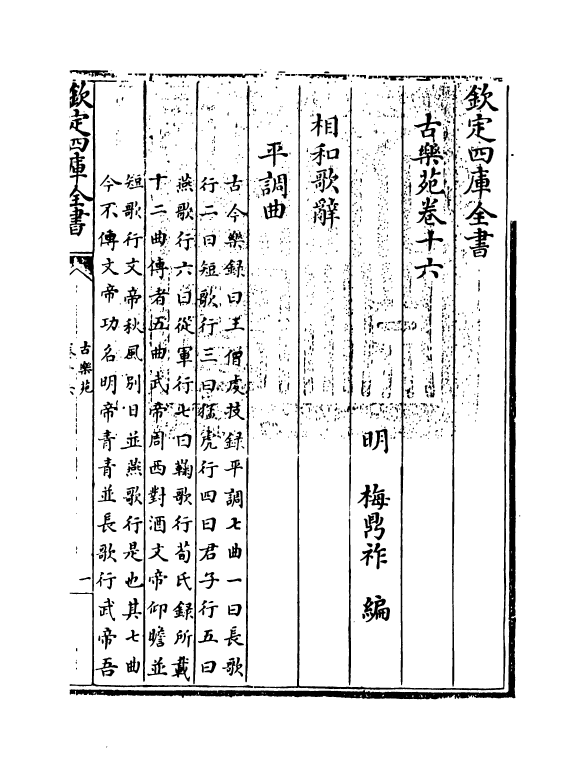 欽定四庫全書
古樂苑卷十六
明 梅鼎祚 編
相和歌辭
平調曲
古今樂録曰王僧䖍技録平調七曲一曰長歌
行二曰短歌行三曰猛虎行四曰君子行五曰
燕歌行六曰從軍行七曰鞠歌行荀氏録所載
十二曲傳者五曲武帝周西對酒文帝仰瞻並
短歌行文帝秋風别日並燕歌行是也其七曲
今不傳文帝功名明帝青青並長歌行武帝吾
欽定四庫全書
古樂苑
卷十六
一